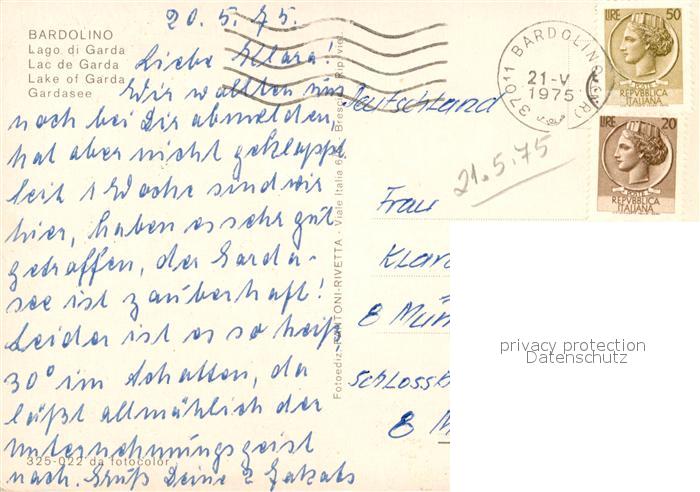 20. 5. 75.
BARDOLINO
Lago di Garda
Lac de Garda
Lake of Garda
Gardasee
Liebe Klara!
Wir wollten uns
noch bei Dir abmelden,
hat aber nicht geklappt
seit 1 Woche sind wir
hier, haben es sehr gut
getroffen, der Garda-
see ist zauberhaft!
Leider ist es so heiß
30° im Schatten, da
läßt allmählich der
Unternehmungsgeist
nach. Gruß Deine 2
325-022 da fotocolor
Fotoediz. -RIVETTA - Viale Italia
Rip. viet.
Deutschland
37011 BARDOLINO (VR)
21-V
1975
LIRE 50
POSTE
REPVBBLICA
ITALIANA
LIRE 20
POSTE
REPVBBLICA
ITALIANA
21.5.75
Frau
Klar
8 Mün
Schloss
8 M
privacy protection
Datenschutz